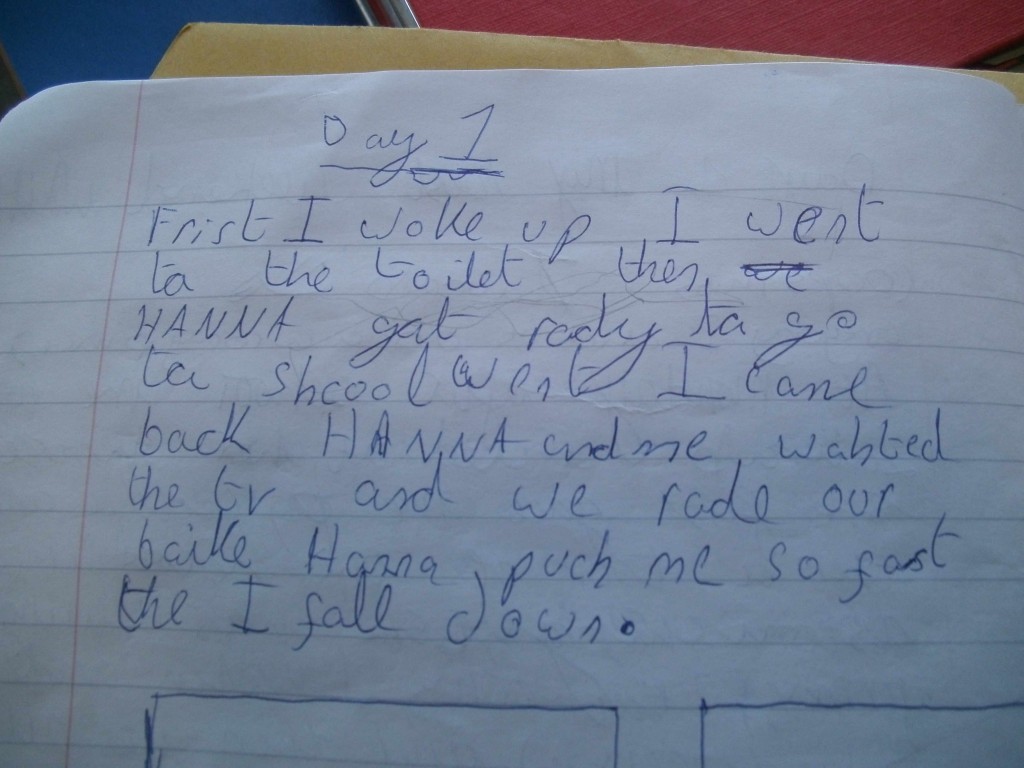 Day 1
Frist I woke up I went
ta the toilet then we
HANNA gat rady ta go
ta shcool went I came
back HANNA and me wahted
the tv and we rade our
baike Hanna puch me so fast
the I fall down.